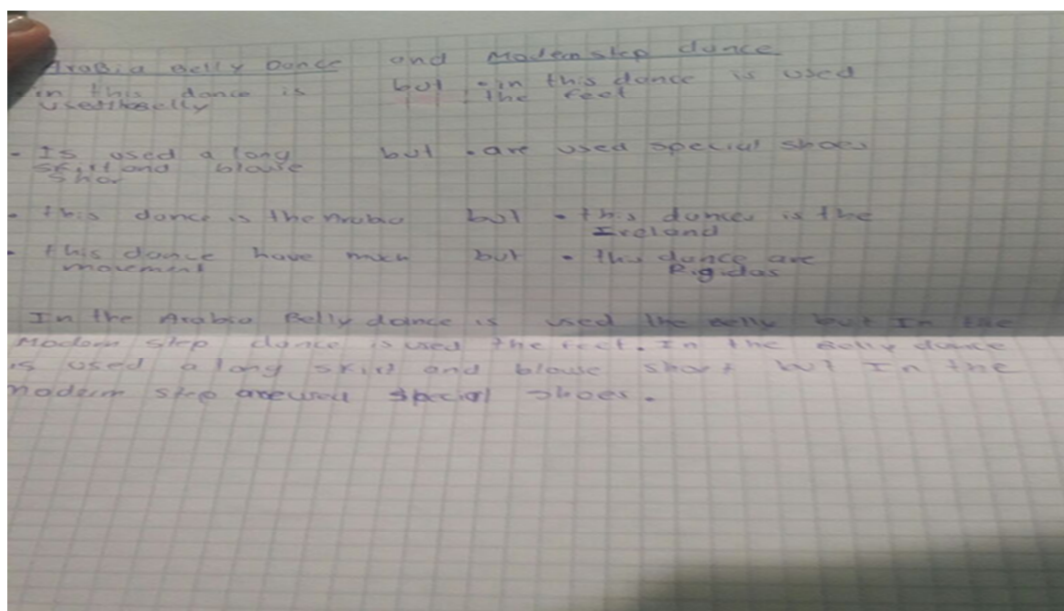 Arabia Belly Dance and Modern step dance
in this dance is but • in this dance is used
used the Belly the feet
- Is used a long but • are used special shoes
skirt and blouse
shor
• this dance is the Arabia but • this dances is the
Ireland
• this dance have much but • this dance are
movement Rigidas
In the Arabia Belly dance is used the Belly but In the
Modern step dance is used the feet. In the Belly dance
is used a long skirt and blouse short but In the
modern step are used special shoes.